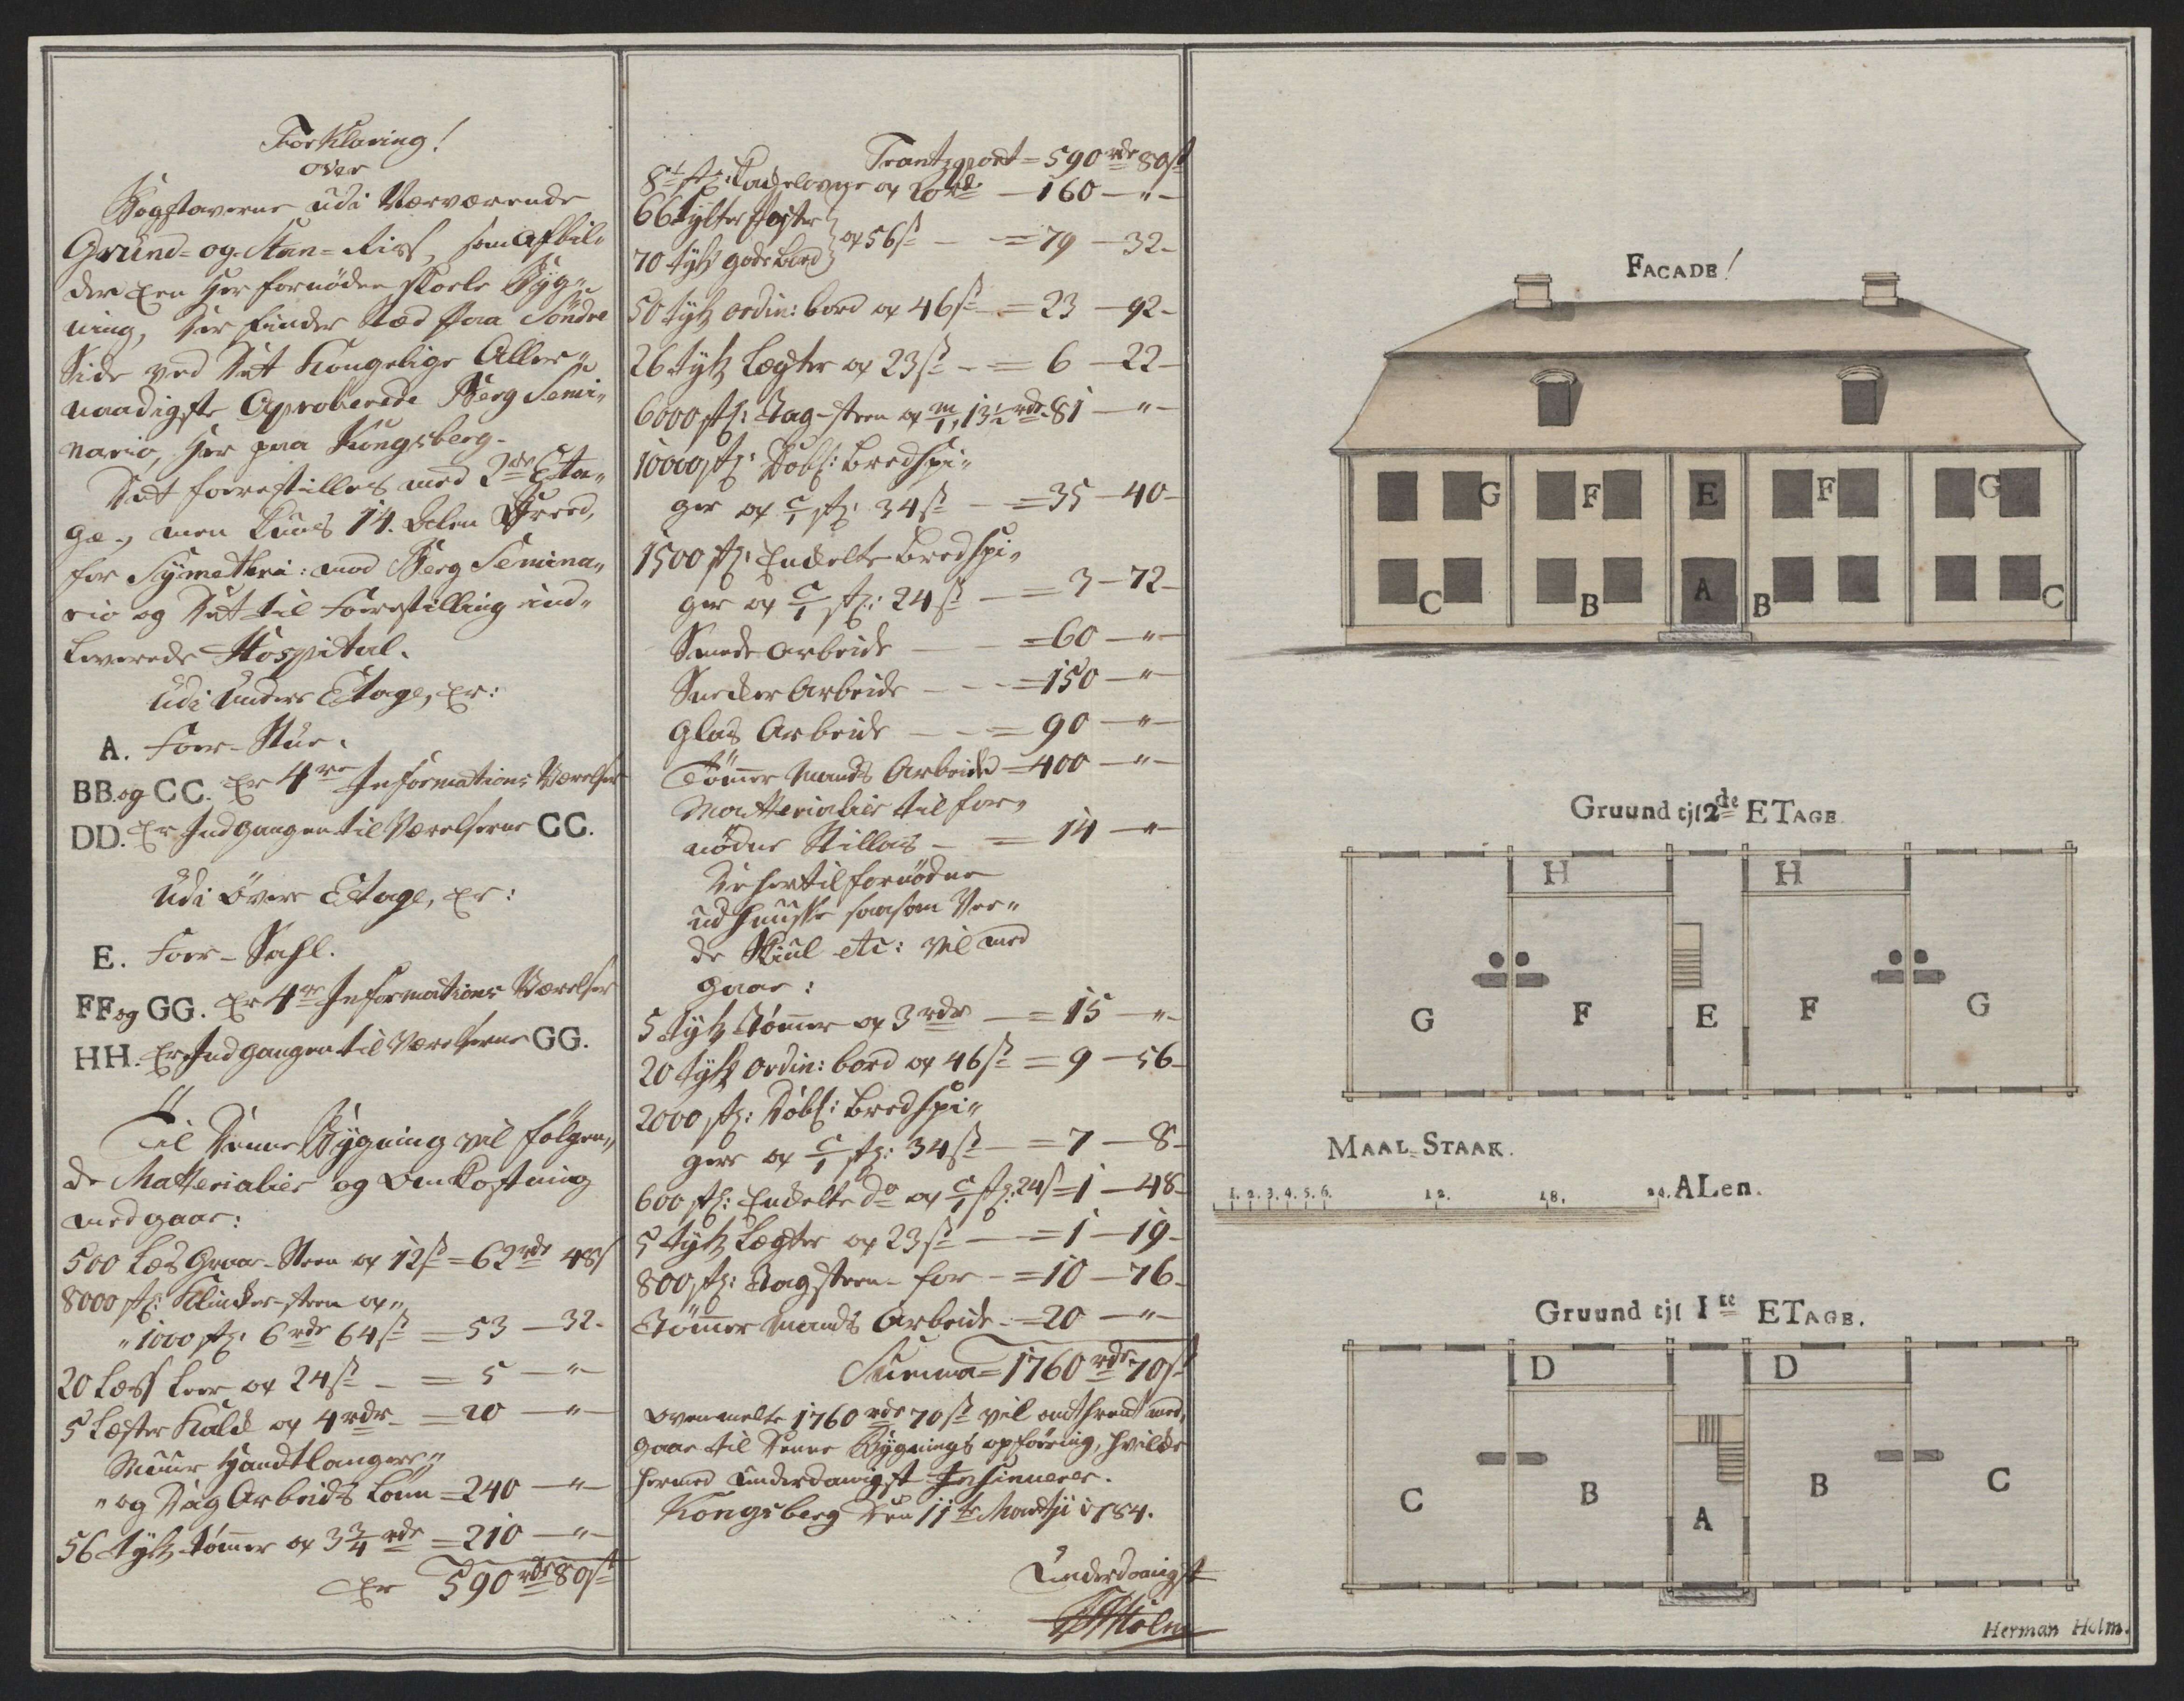 Forklaring!
over
Bogstaverne udi Nærværende
Grund= og Stan= Riss, som afbil„
der een her fornöden skoele Byg„
ning, der finder Sted paa Söndre
Side ved Det Kongelige Aller„
naadigste Aproberede Berg Semi„
nario, her paa Kongsberg.
Det forestilles med 2de Eta„
ge, men kuns 14. Alen Breed,
for Symetheri: med Berg Semina„
rio og Det til Foerestilling ind„
leverede Hospital.
Udi Under Etage, er:
A. Foer-Stue.
BB. og CC. er 4re Informations Værelser
DD. er Indgangen til Værelserne CC.
Udi Övere Etage, er:
E. Foer-Sahl.
FF og GG. er 4re Informations Værelser
HH. er Indgangen til Værelserne GG.
Til Denne Bygning vil fölgen„
de Matterialier og Omkostning
medgaae:
500 Læs Graae-Steen a 12 s = 62 rdr 48 s
8000 st: Klincker-steen a„
„1000 st: 6 rdr 64 s = 53 — 32 -
20 Læss Leer a 24 s — = 5 — „ —
5 Læster Kalck a 4 rdr = 20 — „ —
Muur Handtlangere„
„og Dag Arbeids Lönn = 240 — „ —
56 tylt tömer a 3 3/4 rdr = 210 — „ —
er 590 rdr 80 s
Trantzport = 590 rdr 80 s
8t st: Kackelovne a 20 rdr — 160 — „ —
66 tylter
70 tylt gode Bord } a 56 s — = 79 — 32 -
50 tylt ordin: bord a 46 s — = 23 — 92 -
26 tylt Lægter a 23 s — = 6 — 22 -
6000 st: Tag-steen a m/1, 13 1/2 rdr = 81 — „ —
10000 st: Dobl: bredspi„
ger a c/1 st: 34 s — = 35 — 40 -
1500 st: Enckelte bredspi„
ger a c/1 st: 24 s — = 3 — 72 -
Smede Arbeide — = 60 — „ —
Snecker Arbeide — = 150 — „ —
Glas Arbeide — = 90 — „ —
Tömer Mands Arbeide = 400 — „ —
Matterialier til for„
nödne Stillas — = 14 — „ —
De hertil fornödne
udhuusse saasom Ve„
de Skiul etc: vil med
gaae:
5 tylt tömer a 3 rdr — = 15 — „ —
20 tylt ordin: bord a 46 s = 9 — 56 -
2000 st: Dobl: bredspi„
gere a c/1 st: 34 s — = 7 — 8 -
600 st: Enckelte do a c/1 st: 24 s = 1 — 48 -
5 tylt Lægter a 23 s — = 1 — 19 -
800 st: Tagsteen for — = 10 — 76 -
Tömer Mands Arbeide = 20 — „ —
Summa = 1760 rdr 70 s
Ovenmelte 1760 rdr 70 s vil omtrent med„
gaae til Denne Bygnings opföring, hvilcke
hermed underdanigst Insinueres.
Kongsberg Den 11te Martji 1784.
Underdanigst
HHolm
FACADE!
G F E F G
C B A B C
Gruund tjl 2de ETAGE
H H
G F E F G
MAAL=STAAK.
1. 2. 3. 4. 5. 6. 12. 18. 24. ALen.
Gruund tjl Ite ETAGE.
D D
C B A B C
Herman Holm.